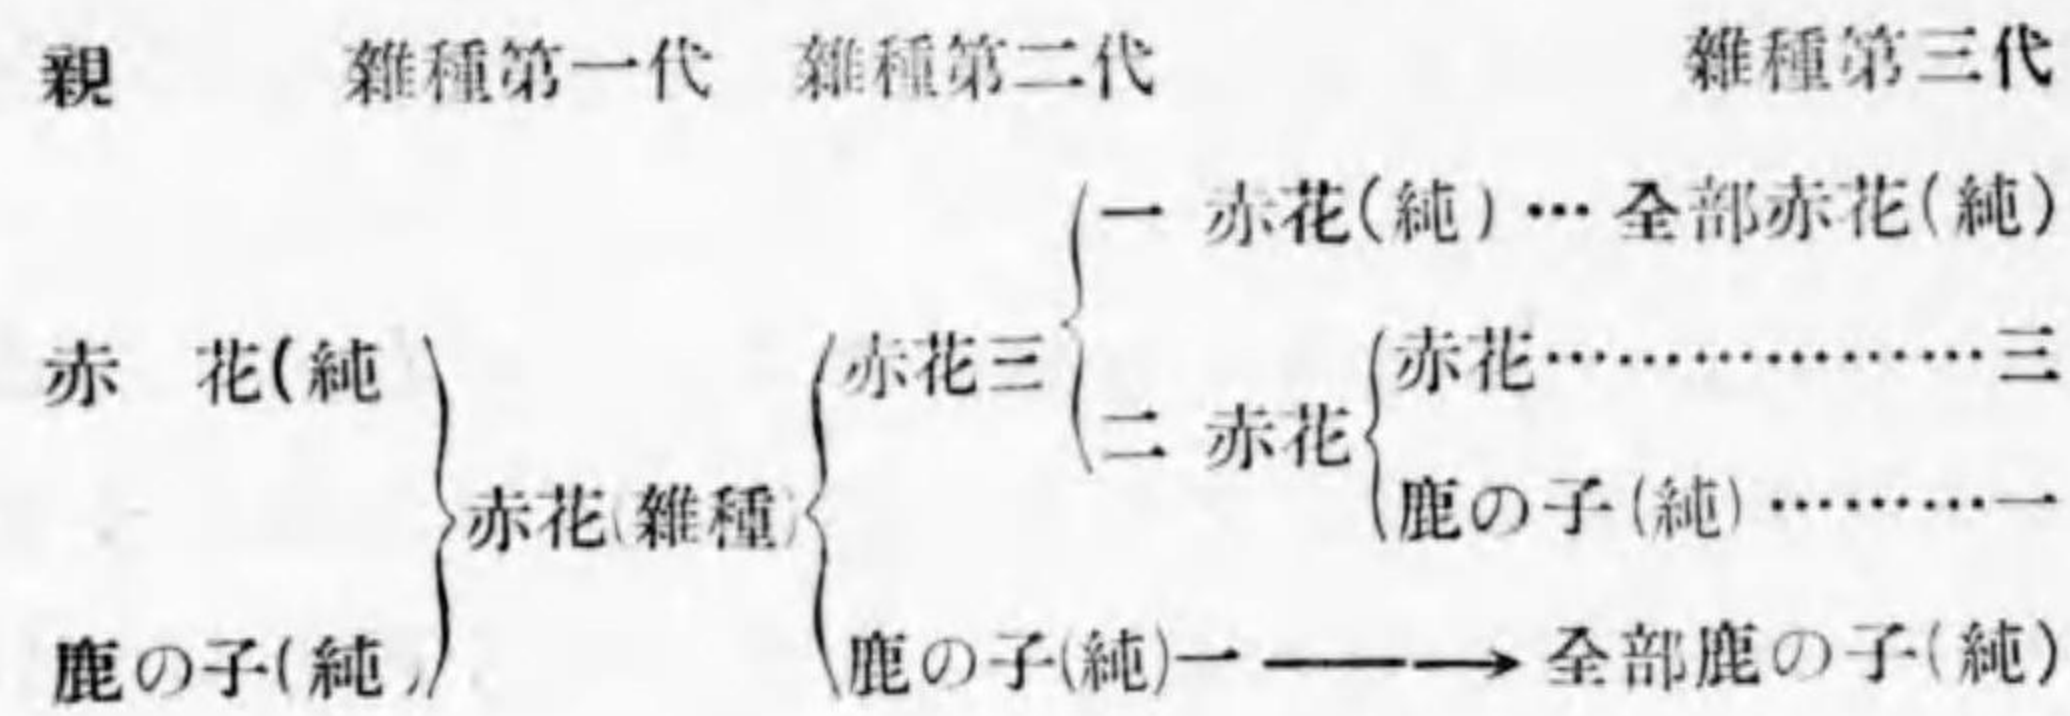 親 雜種第一代 雜種第二代 雜種第三代
一 赤花(純) … 全部赤花(純)
赤 花(純 赤花三 赤花………………三
二 赤花
赤花(雜種) 鹿の子(純) ………一
鹿の子(純 鹿の子(純)一 ——→ 全部鹿の子(純)